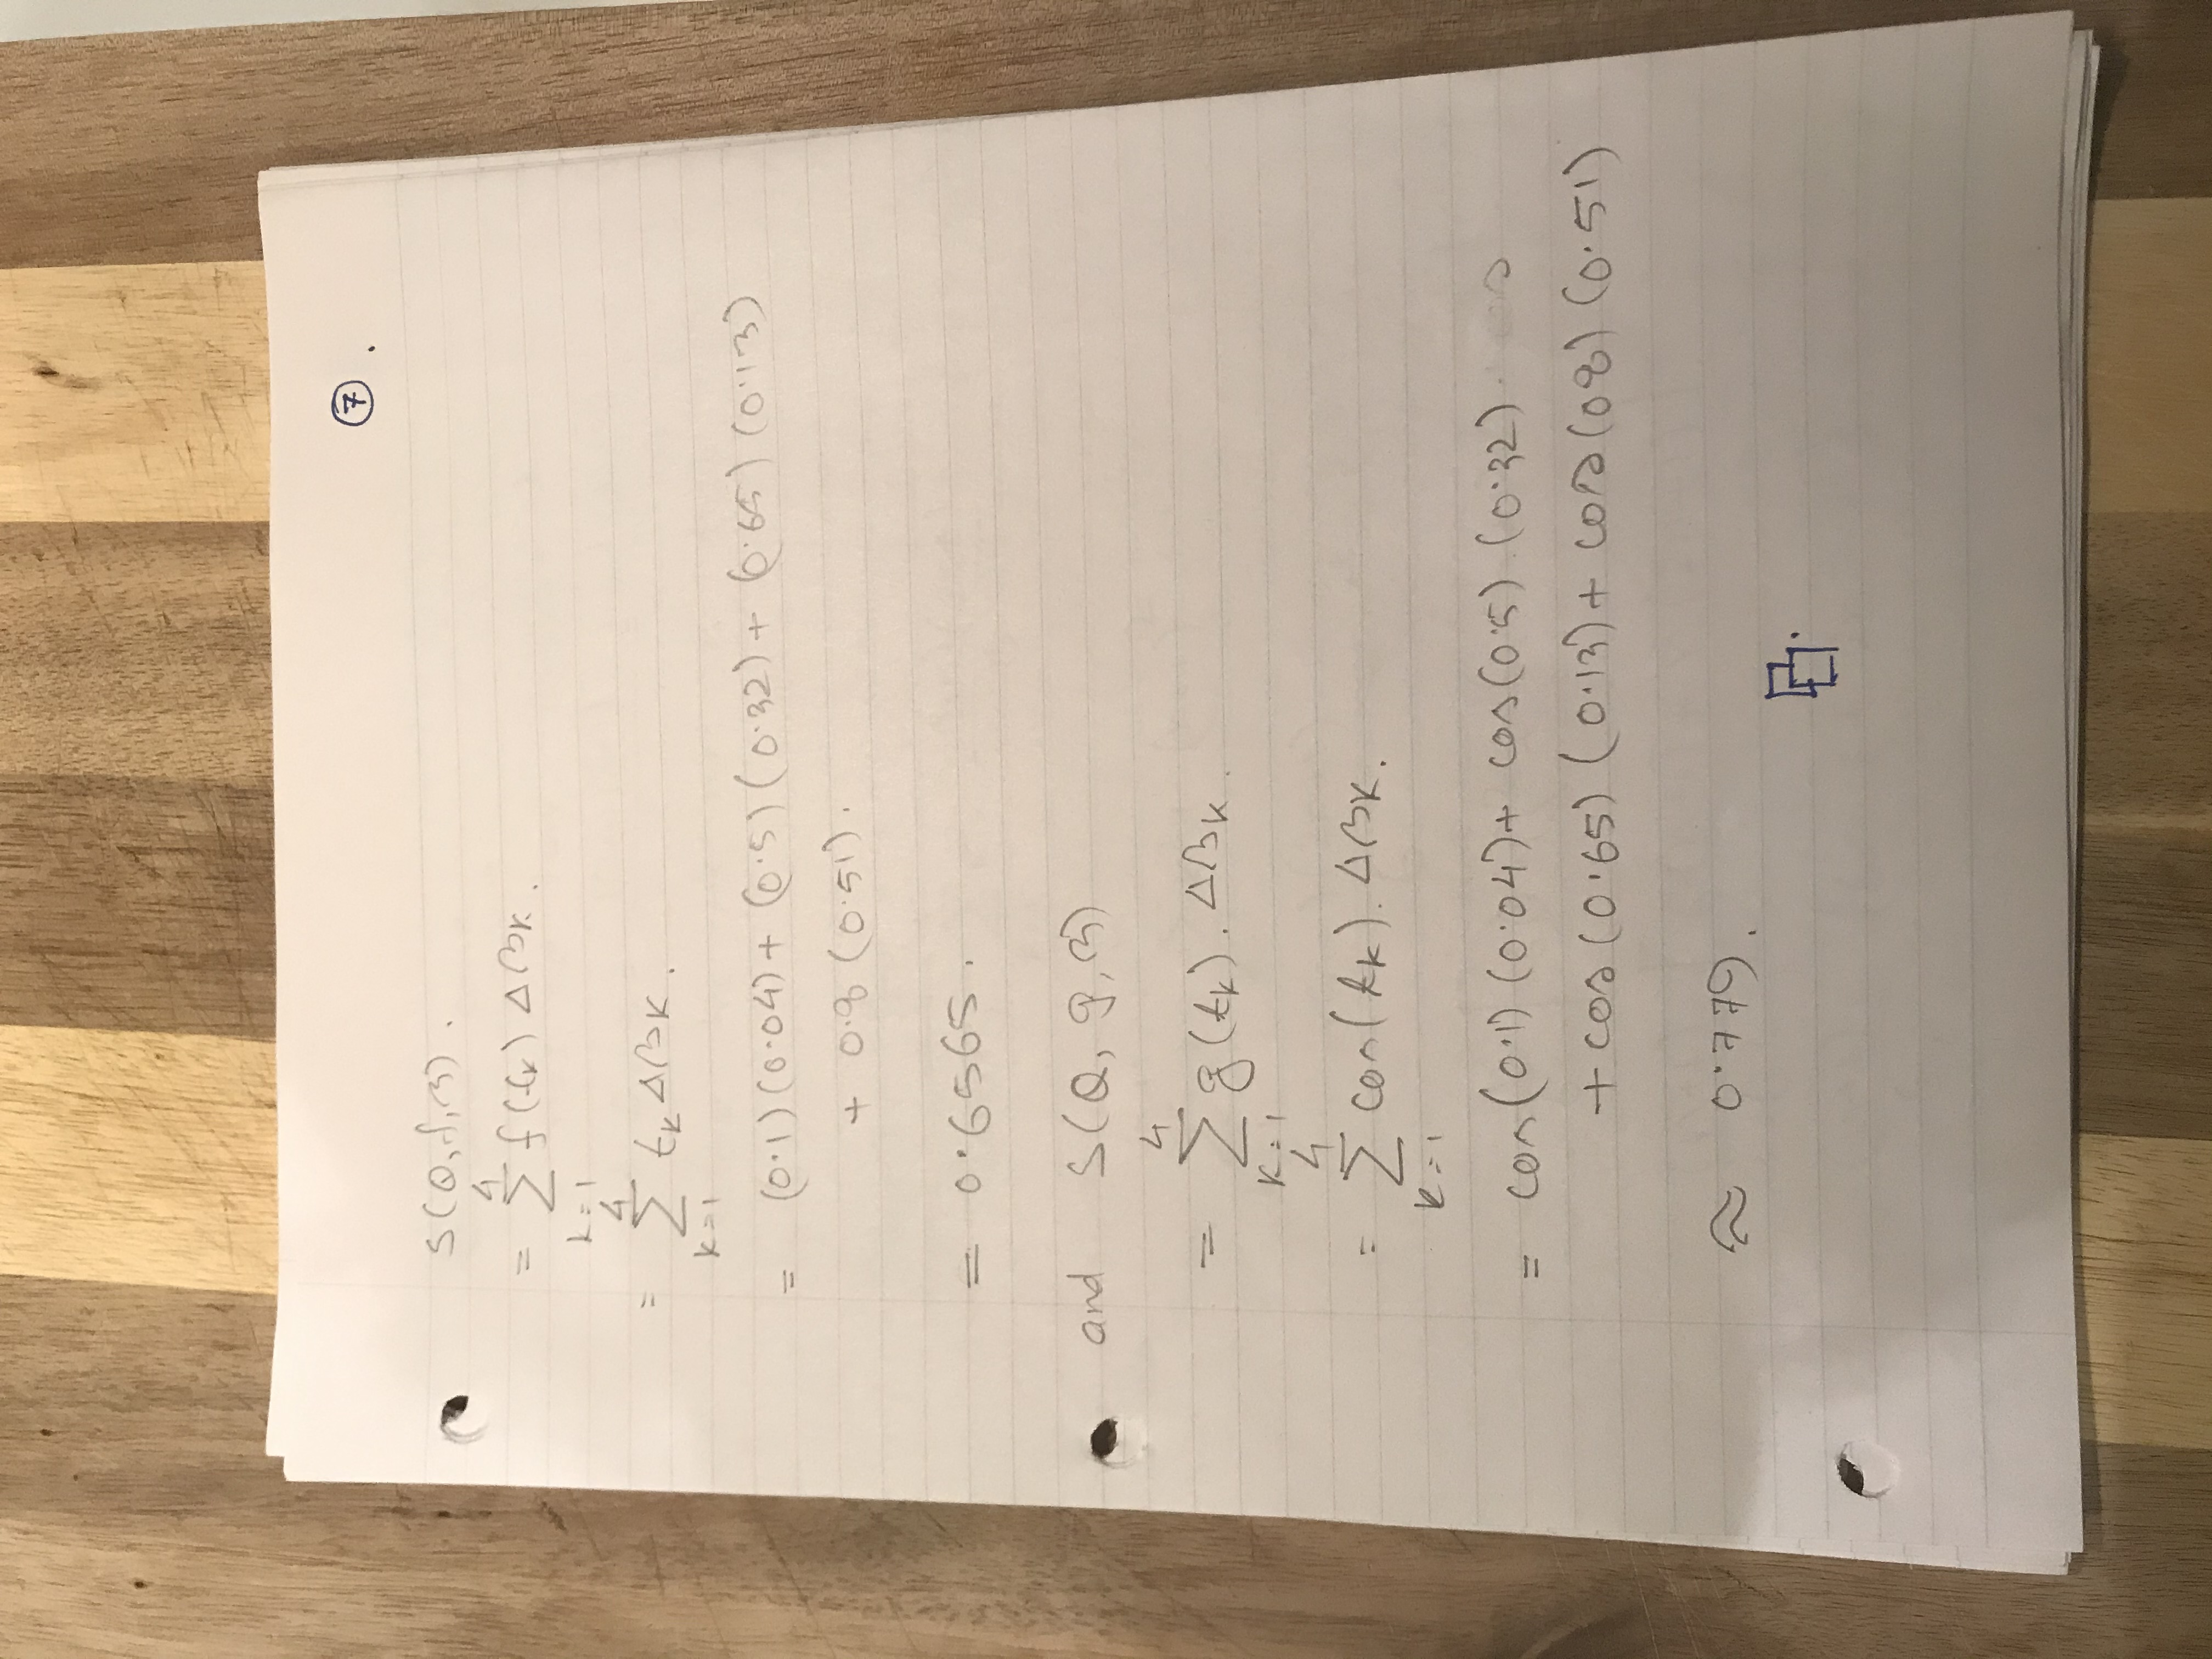 ⑦.
S(Q,f,β).
= 4∑k=1 f(tk) Δβk.
= 4∑k=1 tk Δβk.
= (0.1)(0.04) + (0.5)(0.32) + (0.65)(0.13)
+ 0.8(0.51).
= 0.6565.
and S(Q, g, β)
= 4∑k=1 g(tk). Δβk.
= 4∑k=1 cos(tk). Δβk.
= cos(0.1)(0.04) + cos(0.5).(0.32).
+ cos(0.65)(0.13) + cos(08)(0.51)
≈ 0.779.